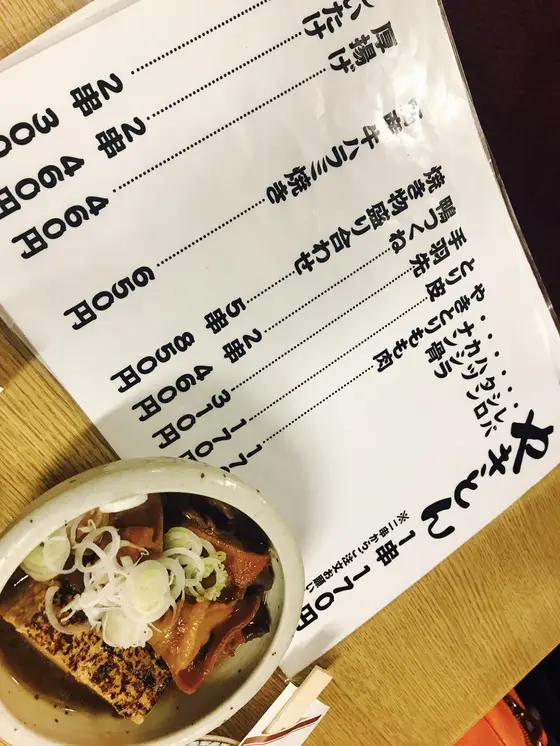 やきとん 1串 170円
※二串からご注文お願い
・レバ
・シロ
・タン
・ハツ
・カシラ
・ナン骨
やきとりもも肉 17
とり皮 170
手羽先 310円
鴨つくね 2串 460円
焼き物盛り合わせ 5串 850円
国産牛ハラミ焼き 650円
厚揚げ 460円
いたけ 2串 460円
2串 300